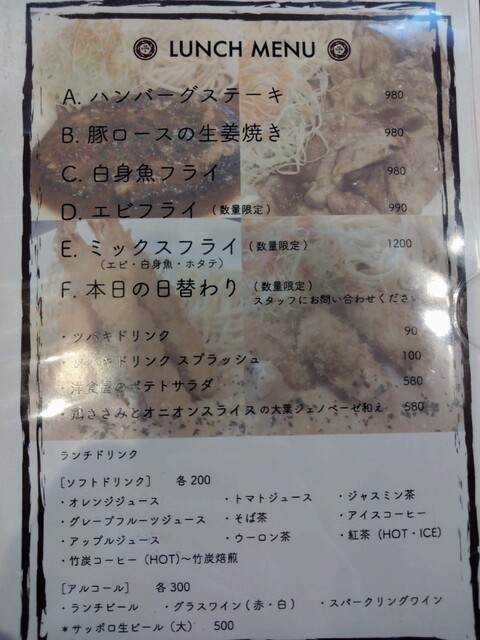 LUNCH MENU
A. ハンバーグステーキ 980
B. 豚ロースの生姜焼き 980
C. 白身魚フライ 980
D. エビフライ (数量限定) 990
E. ミックスフライ (数量限定) 1200
(エビ・白身魚・ホタテ)
F. 本日の日替わり (数量限定)
スタッフにお問い合わせください
・ツバキドリンク 90
・ツバキドリンク スプラッシュ 100
・洋食屋のポテトサラダ 580
・鶏ささみとオニオンスライスの大葉ジェノベーゼ和え 580
ランチドリンク
[ソフトドリンク] 各200
・オレンジジュース ・トマトジュース ・ジャスミン茶
・グレープフルーツジュース ・そば茶 ・アイスコーヒー
・アップルジュース ・ウーロン茶 ・紅茶 (HOT・ICE)
・竹炭コーヒー (HOT)〜竹炭焙煎
[アルコール] 各300
・ランチビール ・グラスワイン (赤・白) ・スパークリングワイン
*サッポロ生ビール (大) 500